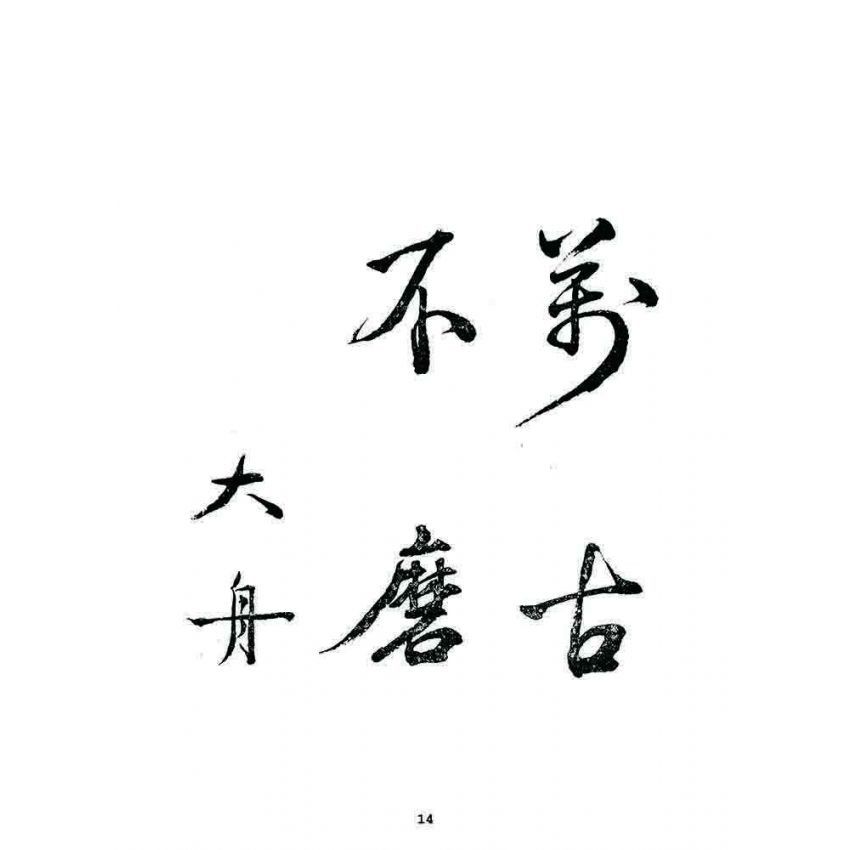 萬古
不磨
大舟
14